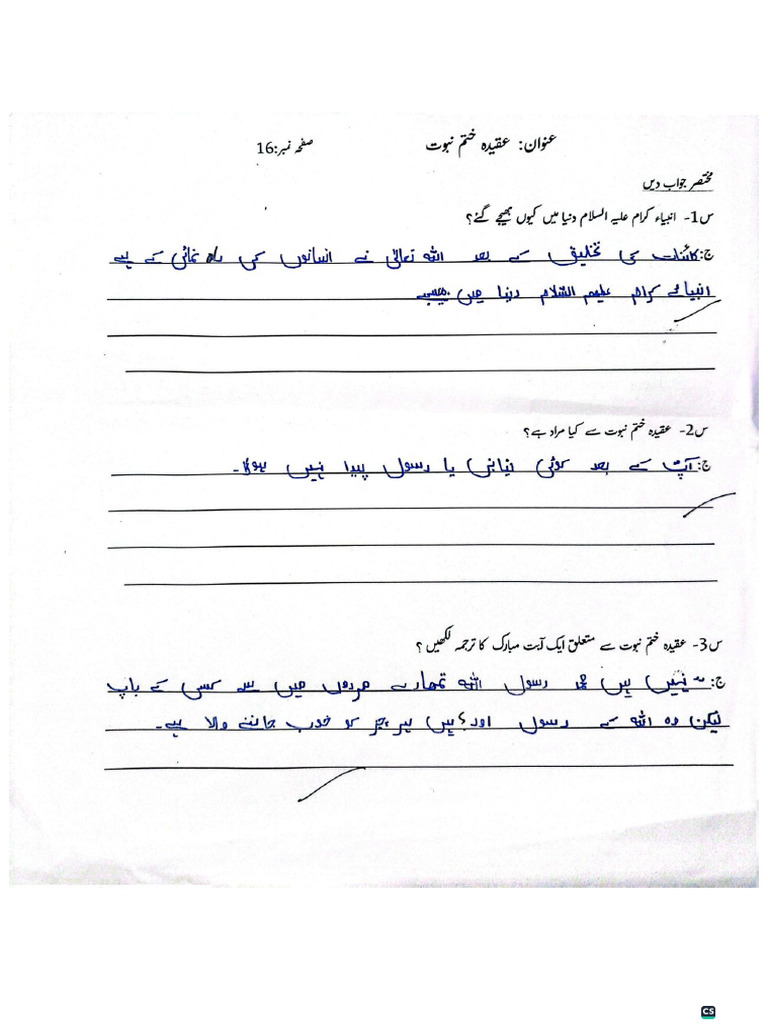 عنوان: عقیدہ ختم نبوت صفحہ نمبر:16
مختصر جواب دیں
س1- انبیاء کرام علیہ السلام دنیا میں کیوں بھیجے گئے؟
ج: کائنات کی تخلیق کے بعد اللہ تعالیٰ نے انسانوں کی راہ نمائی کے لیے
انبیائے کرام علیھم السّلام دنیا میں بھیجے
س2- عقیدہ ختم نبوت سے کیا مراد ہے؟
ج: آپؐ کے بعد کوئی نیا نبی یا رسول پیدا نہیں ہوگا۔
س3- عقیدہ ختم نبوت سے متعلق ایک آیت مبارک کا ترجمہ لکھیں؟
ج: "نہیں ہیں محمدؐ رسول اللہ تمھارے مردوں میں سے کسی کے باپ
لیکن وہ اللہ کے رسول اور ہیں ہر چیز کو خوب جاننے والا ہے۔
CS